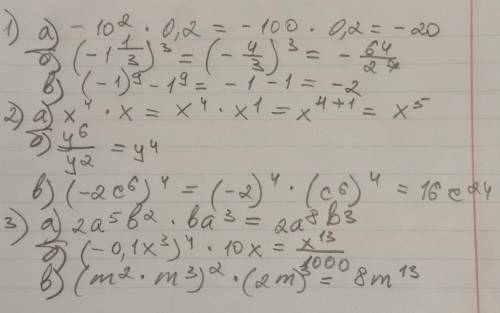 1) а) -10² · 0,2 = -100 · 0,2 = -20
б) (-1 1/3)³ = (-4/3)³ = -64/27
в) (-1)⁹ - 1⁹ = -1 - 1 = -2
2) а) x⁴ · x = x⁴ · x¹ = x⁴⁺¹ = x⁵
б) y⁶/y² = y⁴
в) (-2c⁶)⁴ = (-2)⁴ · (c⁶)⁴ = 16c²⁴
3) а) 2a⁵b² · ba³ = 2a⁸b³
б) (-0,1x³)⁴ · 10x = x¹³/1000
в) (m² · m³)² · (2m)³ = 8m¹³